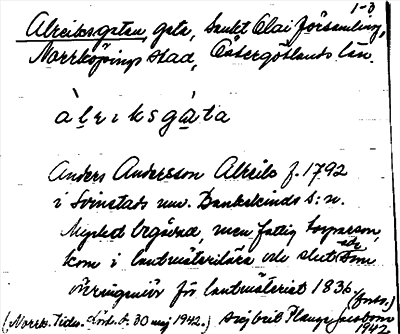 1-3
Alreiksgatan, gata, Sankt Olai församling,
Norrköpings stad, Östergötlands län.
àlreiksgata
Anders Andersson Alreik f. 1792
i Svinstads nuv. Bankekinds s:n.
Mycket begåvad, men fattig torparson,
kom i lantmäterilära och slutade som
överingeniör för lantmäteriet 1836
(Norrk. Tidn. Lörd. d. 30 maj 1942.)
1942